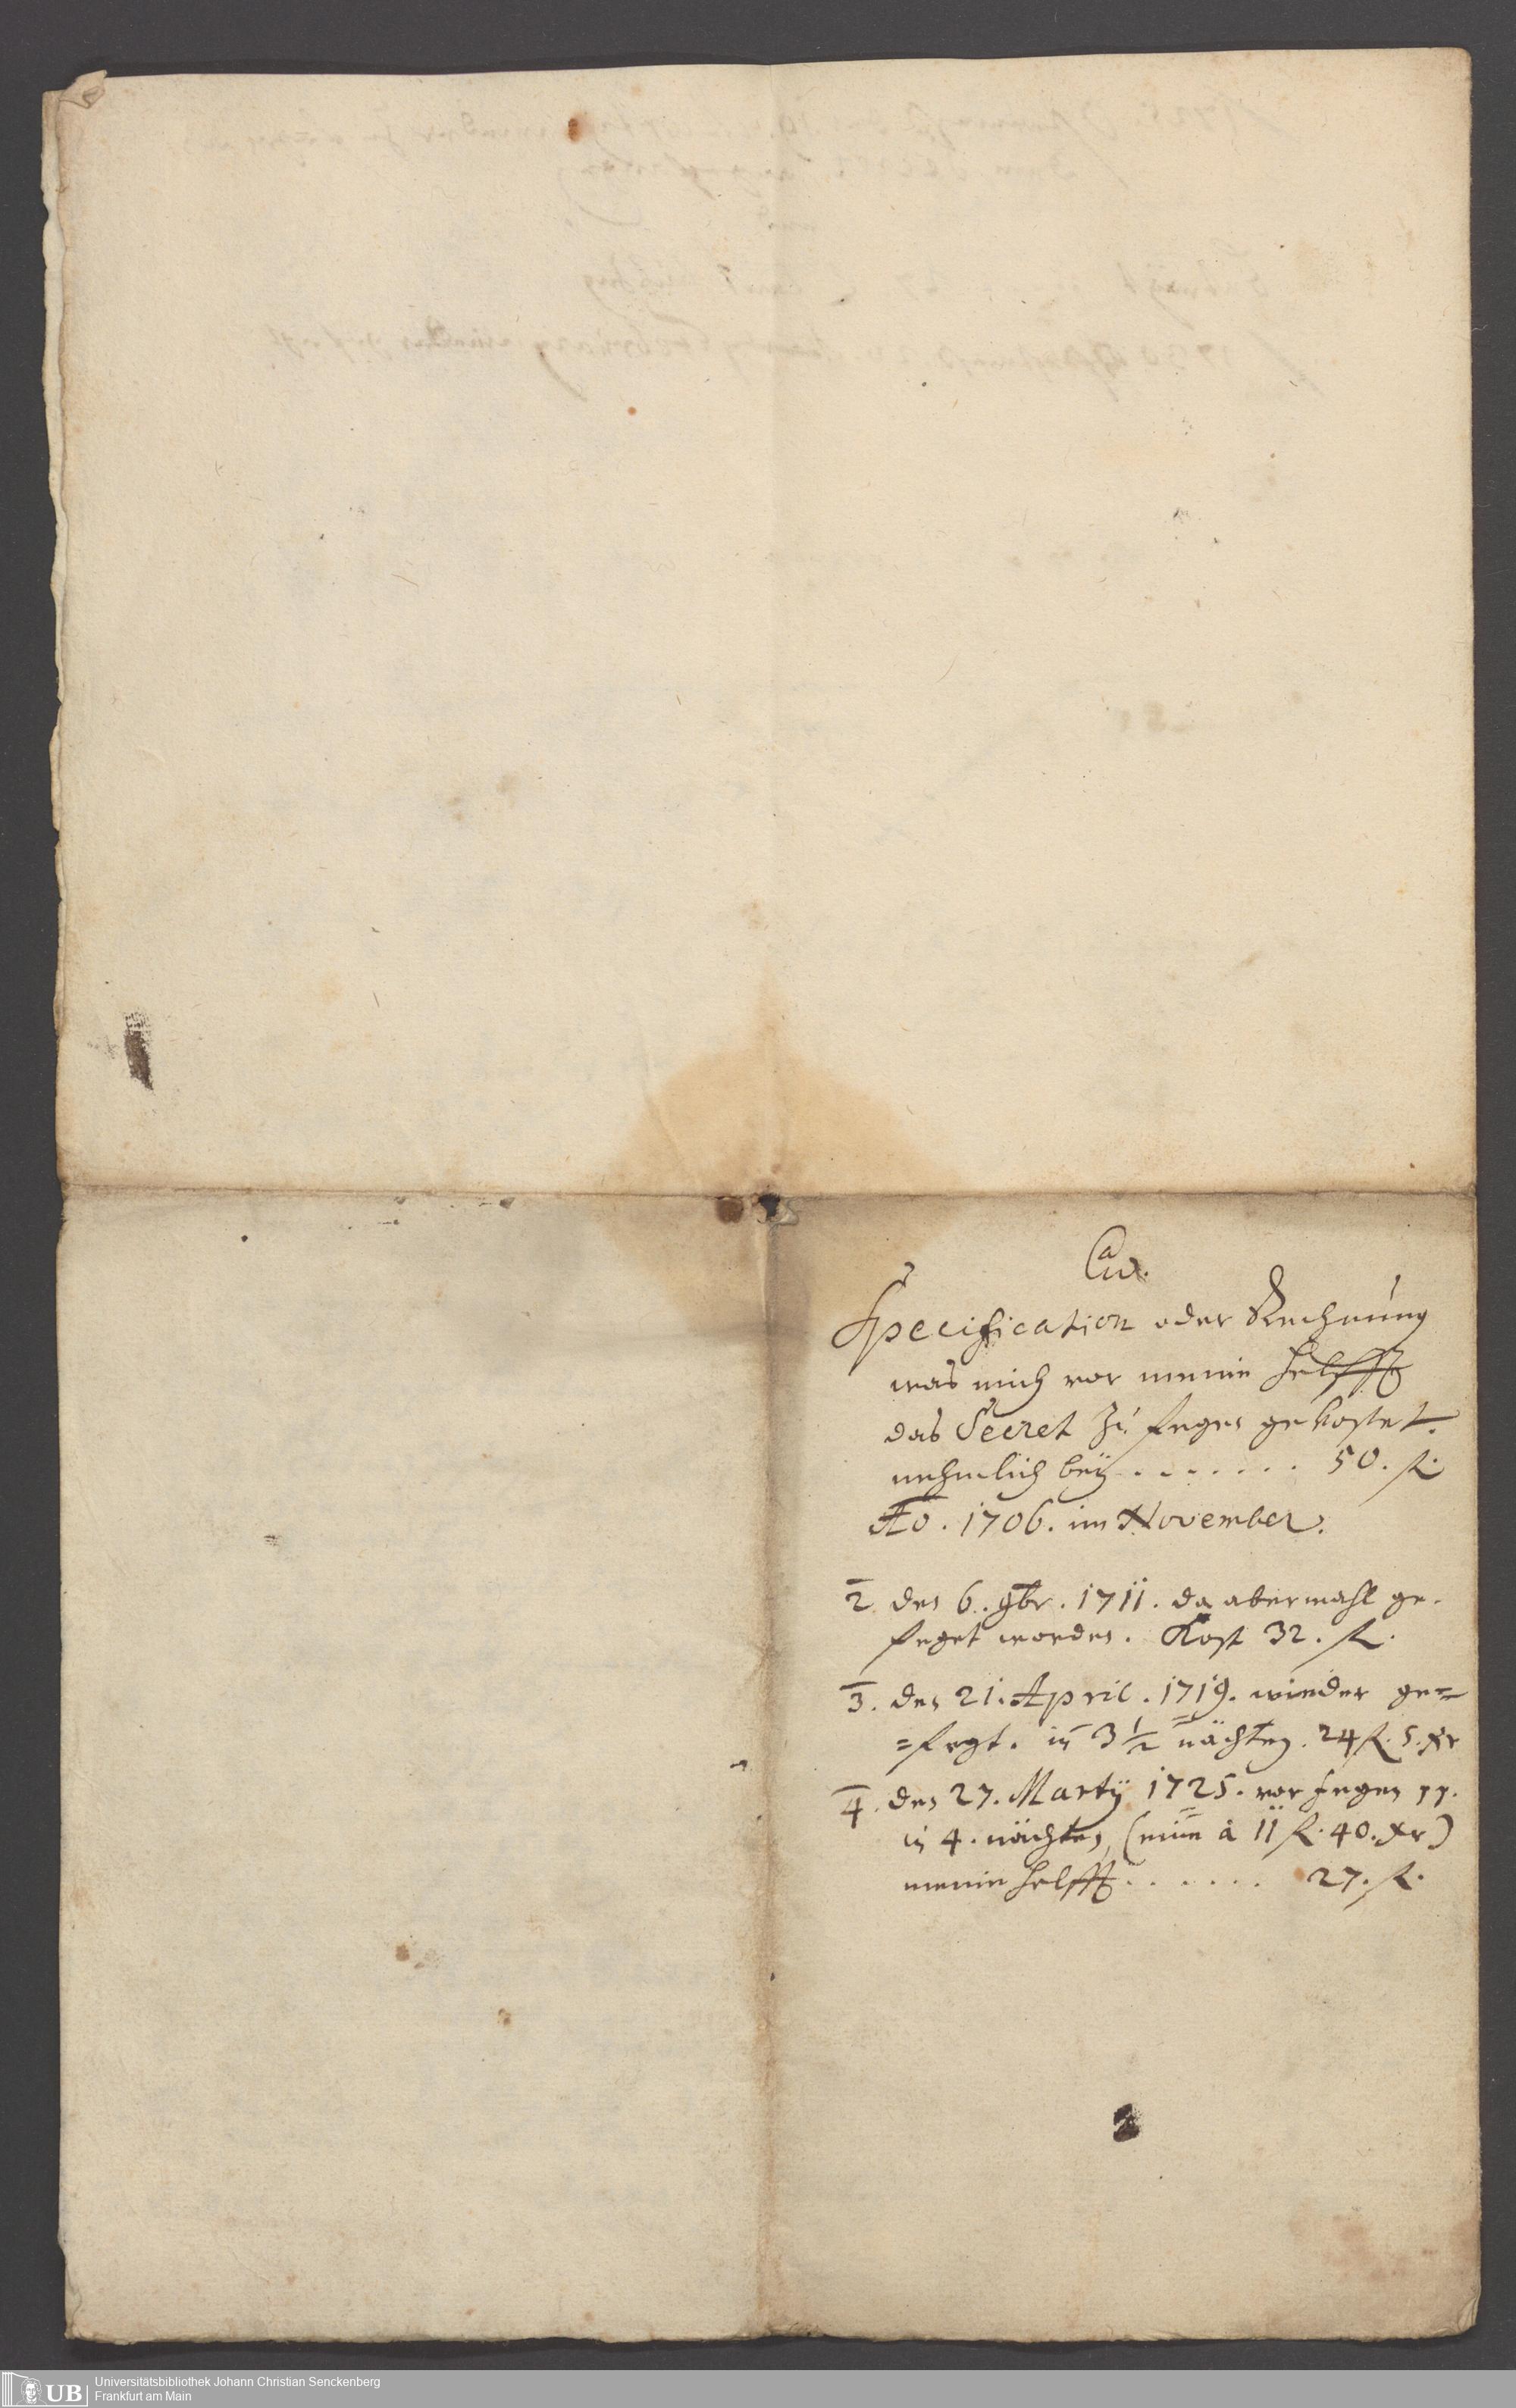 Specification oder Rechnung
was mich vor meine helfft
das Secret zu fegen gekostet.
nehmlich bey . . . . . . . 50. fl.
Ao. 1706. im November.
2. den 6. 9br. 1711. da abermahl ge-
feget worden. Kost 32. fl.
3. den 21. April. 1719. wieder ge=
=fegt. in 3 1/2 nächten. 24 fl. 5. xr
4. den 27. Martÿ 1725. vor fegen
in 4. nächten, ( à 11 fl. 40. xr)
meine helfft . . . . . . 27. fl.
UB
Universitätsbibliothek Johann Christian Senckenberg
Frankfurt am Main